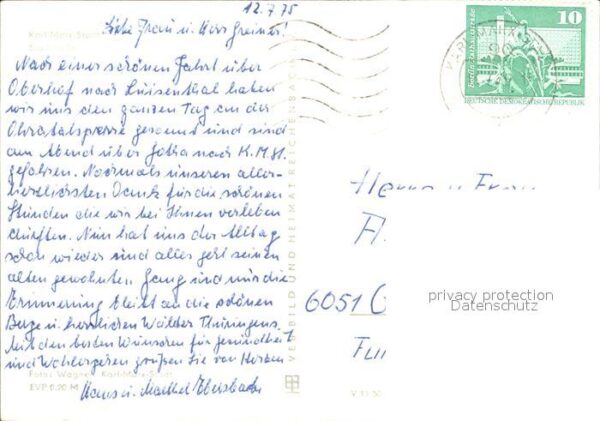 12.7.75
Liebe Frau u. Herr Greiner!
Nach einer schönen Fahrt über
Oberhof nach Luisenthal haben
wir uns den ganzen Tag an der
Ohratalsperre gesonnt und sind
am Abend über Gotha nach K.M.St.
gefahren. Nochmals unseren aller-
herzlichsten Dank für die schönen
Stunden die wir bei Ihnen verleben
durften. Nun hat uns der Alltag
schon wieder und alles geht seinen
alten gewohnten Gang und nur die
Erinnerung bleibt an die schönen
Berge u. herrlichen Wälder Thüringens.
Mit den besten Wünschen für Gesundheit
und Wohlergehen grüßen Sie von Herzen
Hans u. Ebersbach
Foto: Wagner, Karl-Marx-Stadt
EVP 0,20 M
VEB BILD UND HEIMAT REICHENBACH
V 11
KARL-MARX-STADT
90
10
DEUTSCHE DEMOKRATISCHE REPUBLIK
Herrn u. Frau
6051
privacy protection
Datenschutz